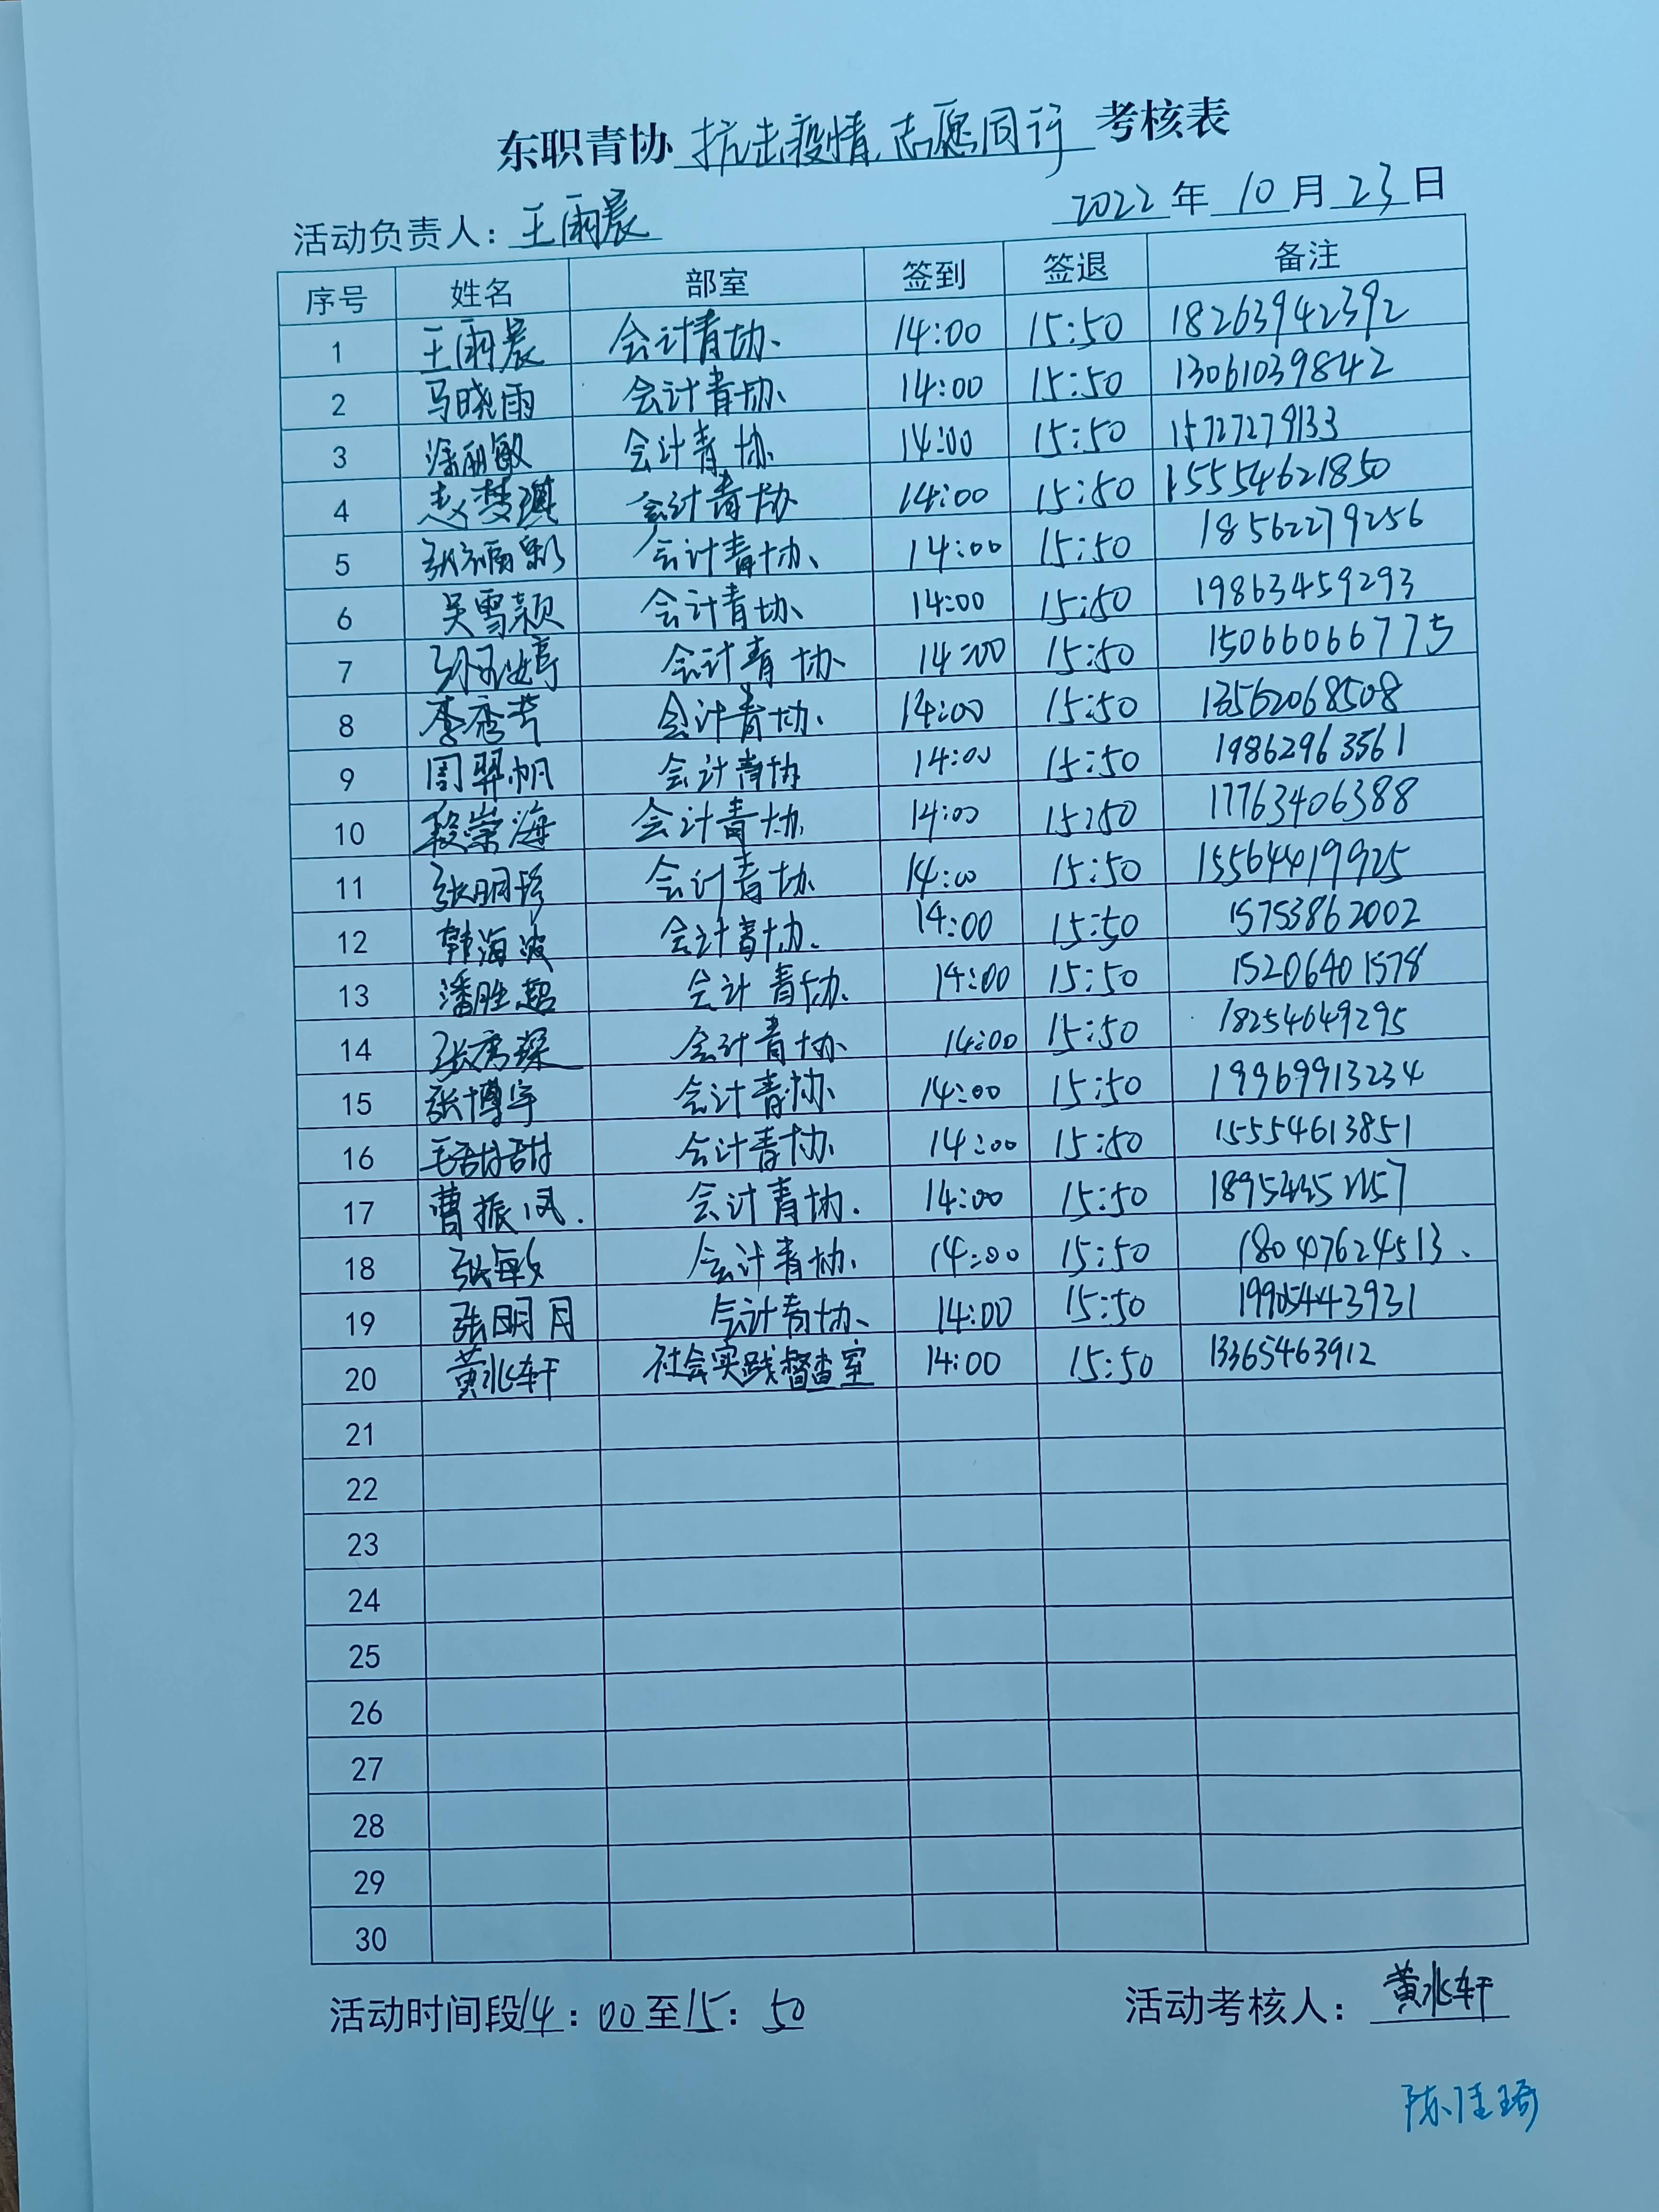 东职青协 抗击疫情,志愿同行 考核表
活动负责人：王雨晨 2022年10月23日
序号 姓名 部室 签到 签退 备注
1 王雨晨 会计青协 14:00 15:50 18263942392
2 马晓雨 会计青协 14:00 15:50 13061039842
3 涂丽敏 会计青协 14:00 15:50 15727279133
4 赵梦琪 会计青协 14:00 15:50 15554621850
5 张福彩 会计青协 14:00 15:50 18562279256
6 吴雪颖 会计青协 14:00 15:50 19863459293
7 会计青协 14:00 15:50 15066066775
8 李秀芹 会计青协 14:00 15:50 13562068508
9 周羿帆 会计青协 14:00 15:50 19862963561
10 段崇海 会计青协 14:00 15:50 17763406388
11 张明珍 会计青协 14:00 15:50 15564419925
12 韩海波 会计青协 14:00 15:50 15753862002
13 潘胜超 会计青协 14:00 15:50 15206401578
14 张秀琛 会计青协 14:00 15:50 18254649295
15 张博宇 会计青协 14:00 15:50 19969913234
16 毛甜甜 会计青协 14:00 15:50 15554613851
17 曹振凤 会计青协 14:00 15:50
18 张敏 会计青协 14:00 15:50 18047624513
19 张明月 会计青协 14:00 15:50 19905443931
20 黄兆轩 社会实践督查室 14:00 15:50 13365463912
21
22
23
24
25
26
27
28
29
30
活动时间段14：00至15：50 活动考核人：黄兆轩
陈佳琦